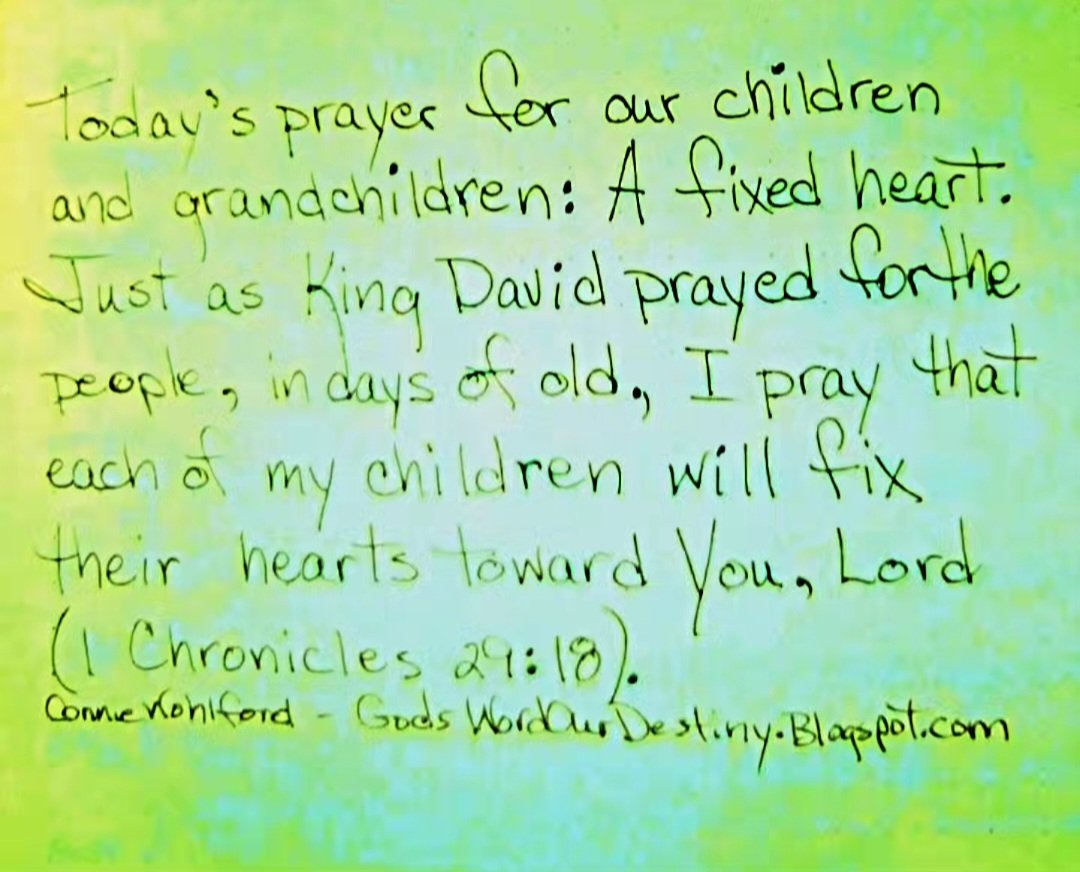 Today's prayer for our children
and grandchildren: A fixed heart.
Just as King David prayed for the
people, in days of old, I pray that
each of my children will fix
their hearts toward You, Lord
(1 Chronicles 29:18).
Connie Wohlford - GodsWordOurDestiny.Blogspot.com